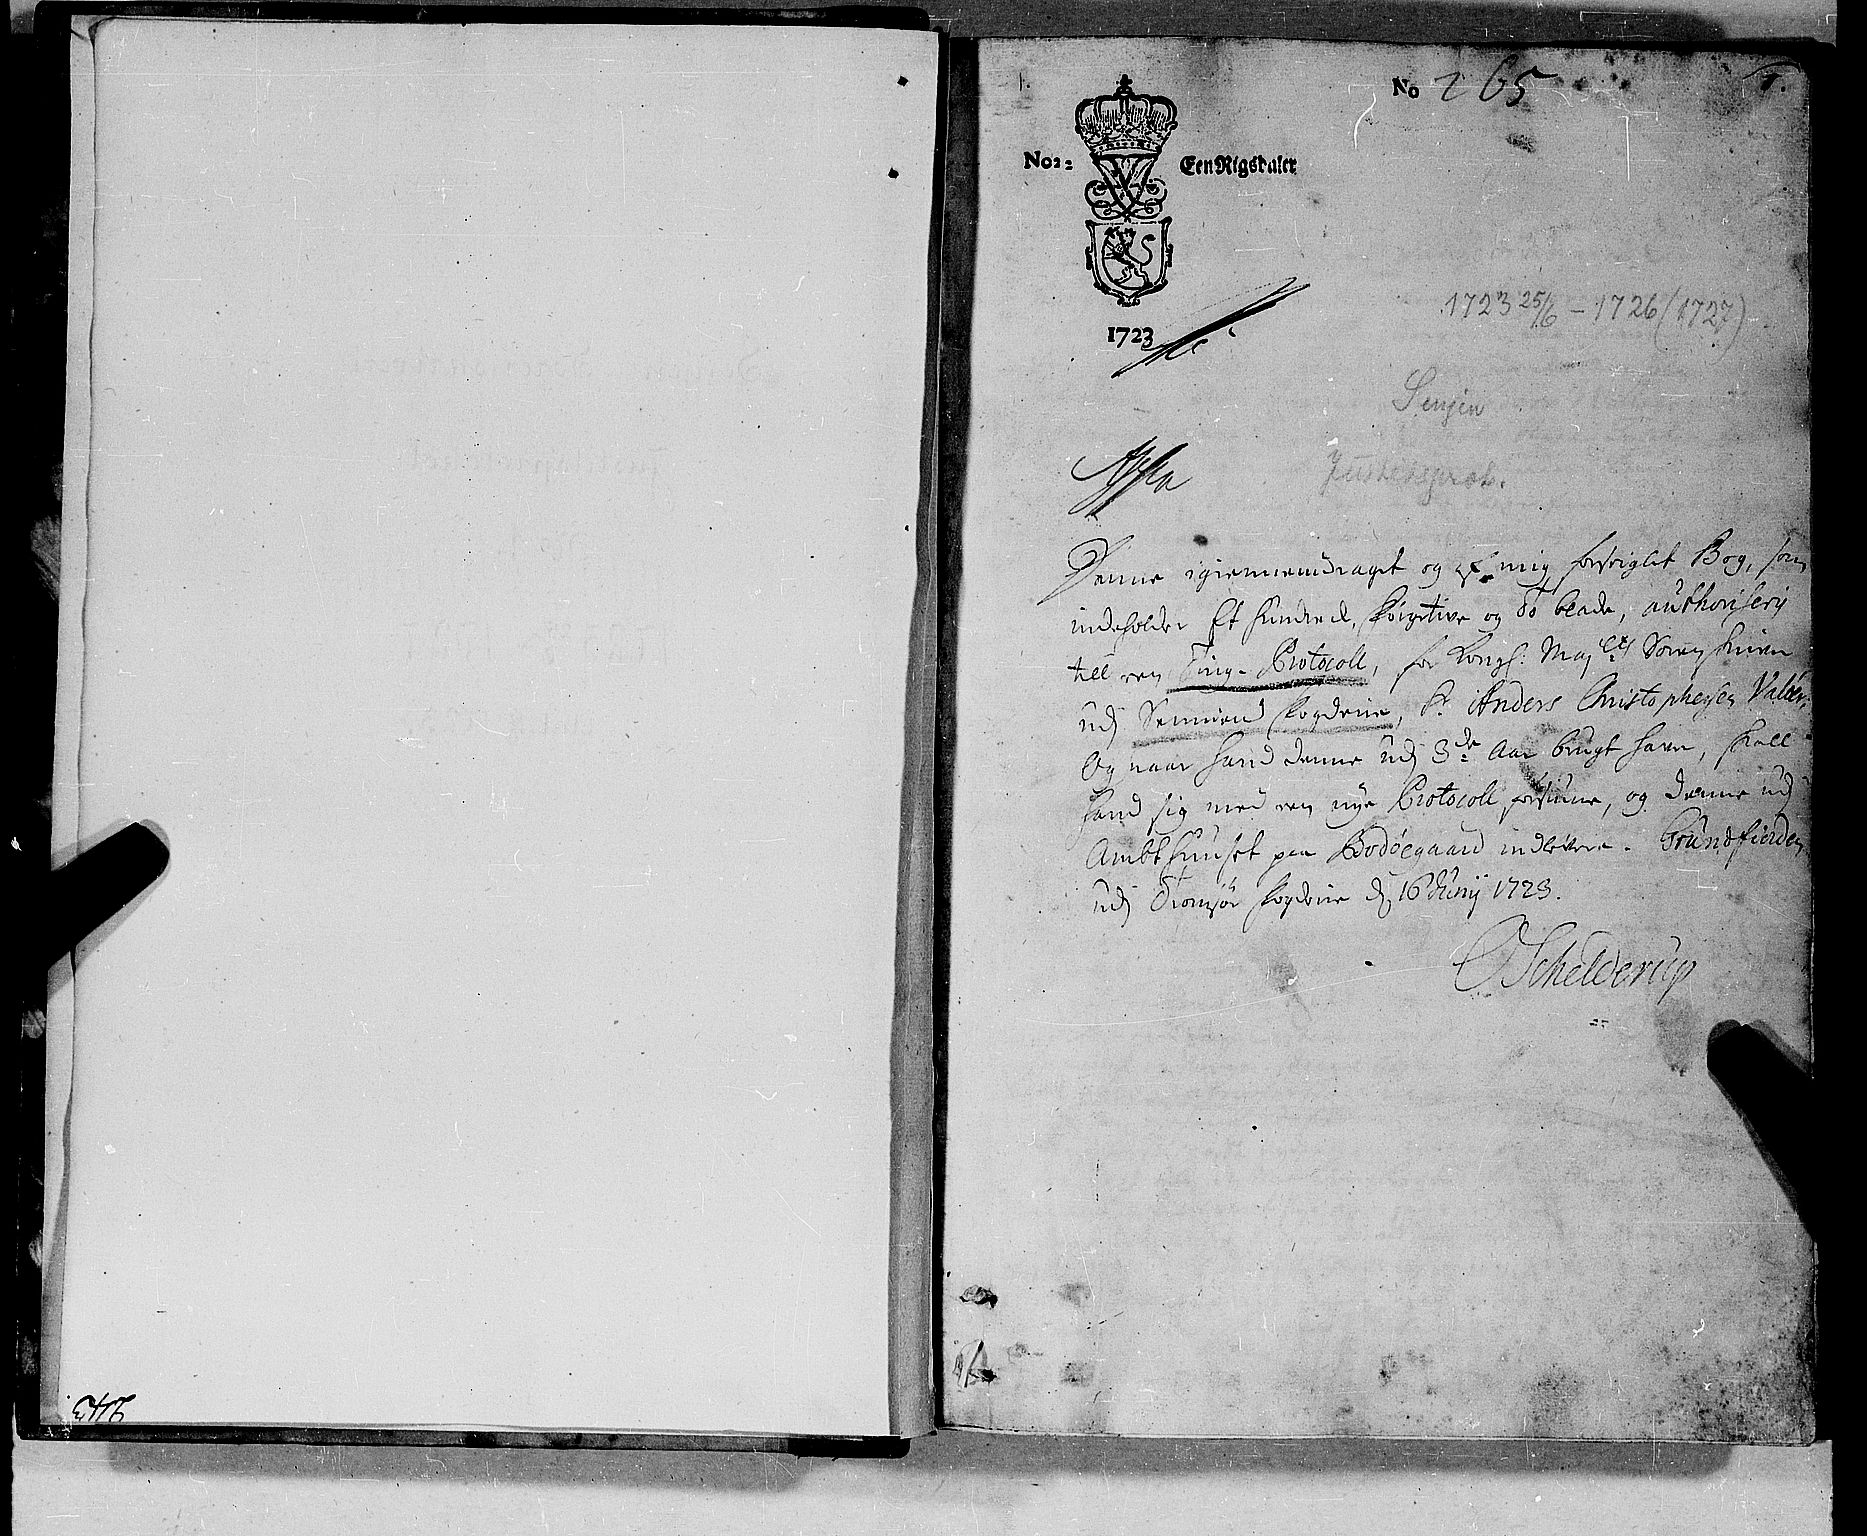 No 265
1.
No 2:
Een Rigsdaler
1723
1723 25/6 – 1726 (1727)
Senjen
Justitsprot.
Denne igiennemdraget og af mig forseiglet Bog, som
indeholder Et hundrede, og to blade, authoriseris
till een Ting-Protocoll, for Kongl: May.ts Sorenskriver
udj Senniens fogderie, Sr. Anders Christophersen
Og naar hand denne udj 3de Aar brugt haver, skall
hand sig med een nye Protocoll forsiune, og denne udj
Ambthuuset paa Bodøegaard indlevere. Grundfiorden
udj Tromsøe fogderie d. 16 Junij 1723.
O Schelderup